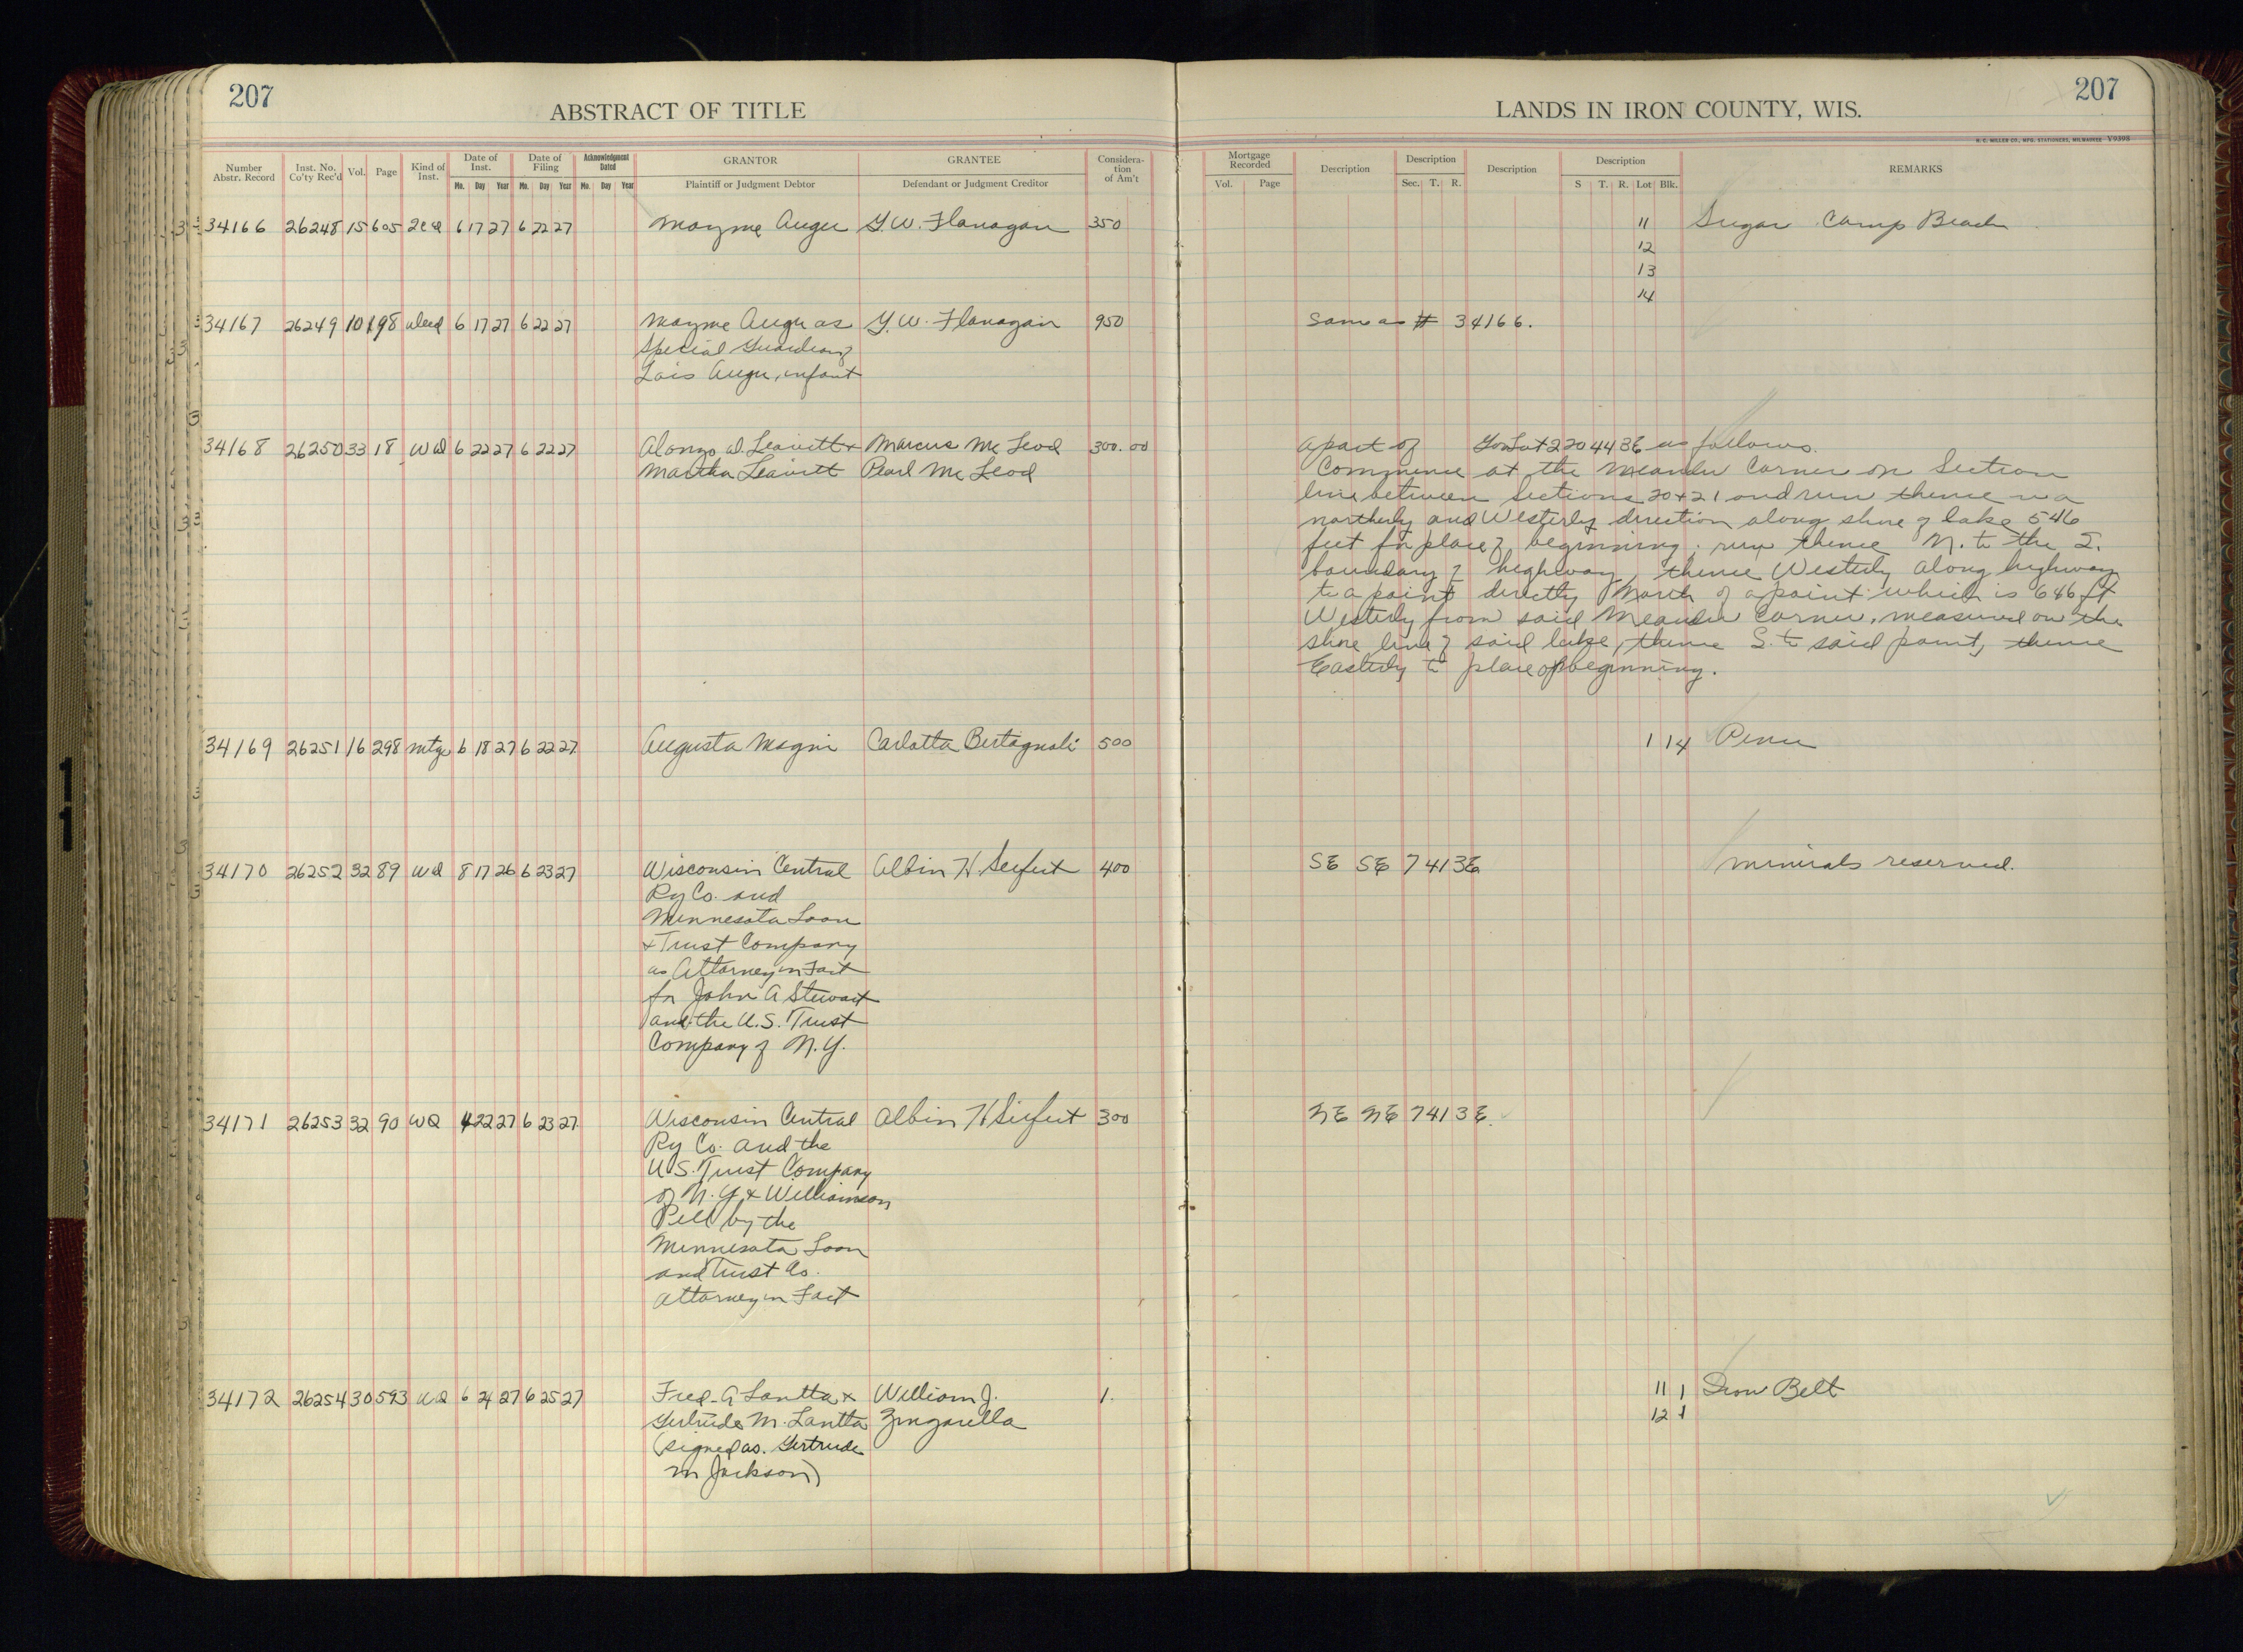 207
ABSTRACT OF TITLE
LANDS IN IRON COUNTY, WIS.
207
H. C. MILLER CO., MFG. STATIONERS, MILWAUKEE V9398
Number Abstr. Record | Inst. No. Co'ty Rec'd | Vol. | Page | Kind of Inst. | Date of Inst. Mo. Day Year | Date of Filing Mo. Day Year | Acknowledgment Dated Mo. Day Year | GRANTOR Plaintiff or Judgment Debtor | GRANTEE Defendant or Judgment Creditor | Consideration of Am't | Mortgage Recorded Vol. Page | Description | Description Sec. T. R. | Description | Description S T. R. Lot Blk. | REMARKS
34166 26248 15 605 2cd 6 17 27 6 22 27 Mayme Auger G.W. Flanagan 350 11 Sugar Camp Beach
12
13
14
34167 26249 10 198 deed 6 17 27 6 22 27 Mayme Auger as G.W. Flanagan 950 Same as # 34166.
Special Guardian of
Lois Auger, infant
34168 26250 33 18 WD 6 22 27 6 22 27 Alonzo D. Leavitt + Marcus Mc Leod 300.00 a part of Gov Lot 2 20 44 3E as follows.
Martha Leavitt Pearl Mc Leod
Commence at the Meander Corner on Section
line between Sections 20 + 21 and run thence in a
northerly and Westerly direction along shore of lake 546
feet for place of beginning; run thence N. to the S.
boundary of highway, thence Westerly along highway
to a point directly North of a point which is 646 ft
Westerly from said Meander Corner, measured on the
shore line of said lake, thence S. to said point, thence
Easterly to place of beginning.
34169 26251 16 298 mtge 6 18 27 6 22 27 Augusta Magni Carlotta Bertagnoli 500 1 14 Pence
34170 26252 32 89 WD 8 17 26 6 23 27 Wisconsin Central Albin H Seifert 400 SE SE 7 41 3E minerals reserved.
Ry Co. and
Minnesota Loan
+ Trust Company
as Attorney in Fact
for John A Stewart
and the U.S. Trust
Company of N.Y.
34171 26253 32 90 WD 4 22 27 6 23 27 Wisconsin Central Albin H Seifert 300 NE NE 7 41 3E.
Ry Co. and the
U.S. Trust Company
of N.Y. + Williamson
Pell by the
Minnesota Loan
and Trust Co.
Attorney in Fact
34172 26254 30 593 WD 6 24 27 6 25 27 Fred A Lantta + William J. 1. 11 1 Iron Belt
Gertrude M. Lantta Zingarella 12 1
(signed as. Gertrude
M Jackson)